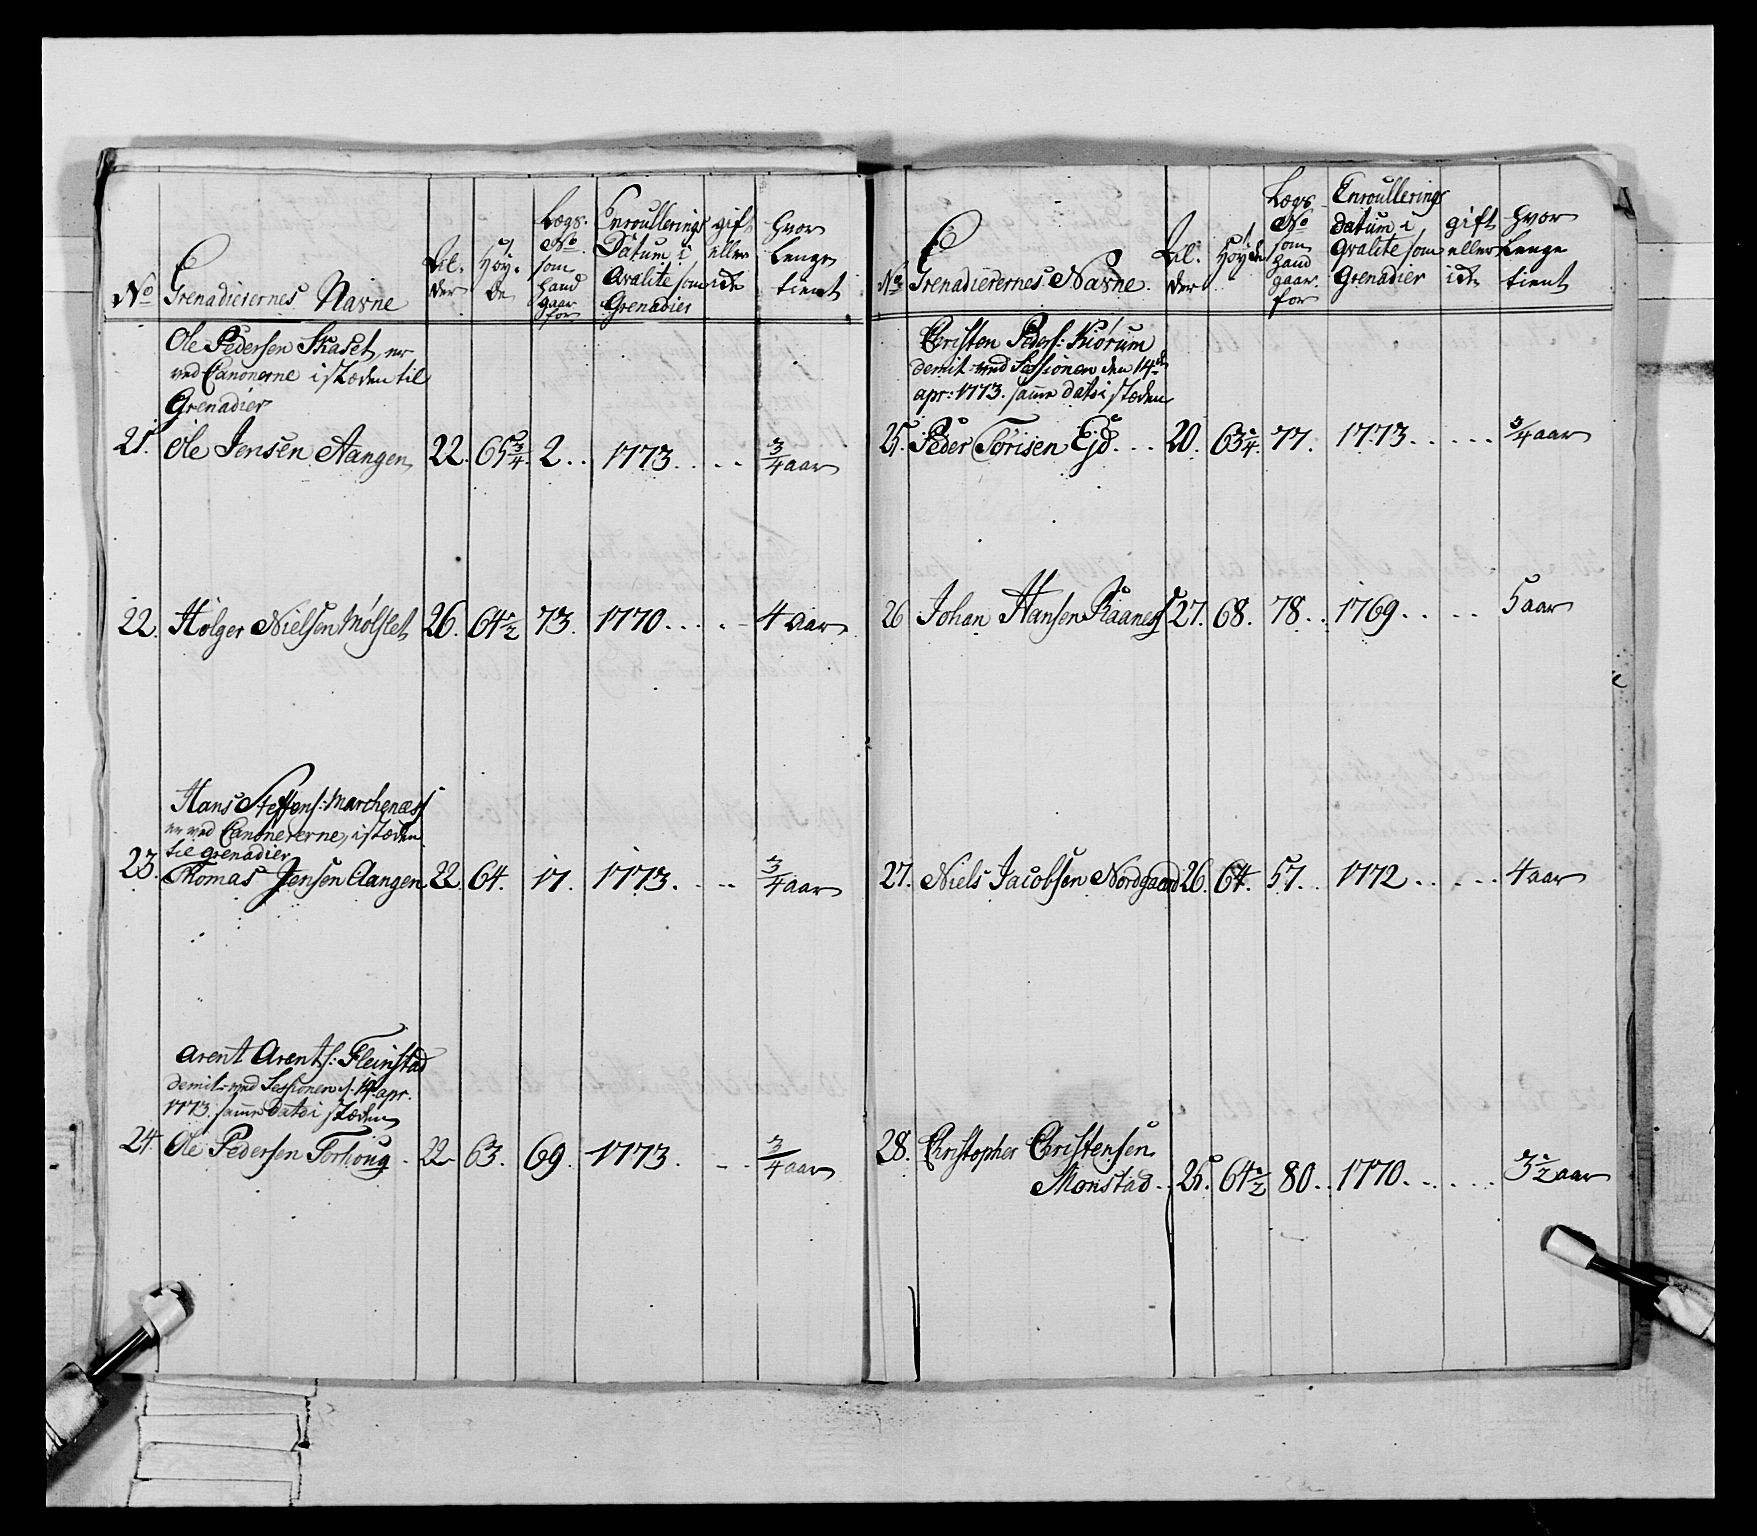 No Grenadierernes Nafne
Al-
der
Höy-
de
Lægs-
No
som
hand
gaar
for
Enroullerings
Datum i
Qvalite som
Grenadier
gift
eller
ide
hvor
Lenge
tient
Ole Pedersen Skaset, er
ved Canonerne i stæden til
Grenadier
21. Ole Jensen Aangen, 22. 65 3/4. 2.. 1773.... 3/4 aar
22. Holger Nielsen Mølslet 26. 64 1/2 73. 1770.... 4 aar.
Hans Steffens: Marchenæss
er ved Canonererne, i stæden
til grenadier
23. Thomas Jensen Aangen 22. 64. 17. 1773. ... 3/4 aar
Arent Arents: Fleinstad
demit: ved Sessionen d. 14 apr.
1773. samme Dato i stæden
24. Ole Pedersen Torhoug. 22 63. 69. 1773. .. 3/4 aar
No Grenadierernes Nafne
Al-
der
Höyde
Lægs
No
som
hand
gaar
for
Enroullerings
datum i
Qvalite som
Grenadier
gift
eller
ide
hvor
Lenge
tient
Christen Peders: Kiörum
demit ved Sessionen den 14de
apr: 1773. samme dato i stæden
25. Peder Törisen Eid... 20. 63 1/4. 77. 1773..... 3/4 aar
26 Johan Hansen Raaness 27. 68. 78.. 1769.... 5 aar
27. Niels Jacobsen Nordgaard 26. 64. 57.. 1772..... 4 aar
28. Christopher Christensen
Monstad.. 25. 64 1/2 80.. 1770..... 3 1/2 aar